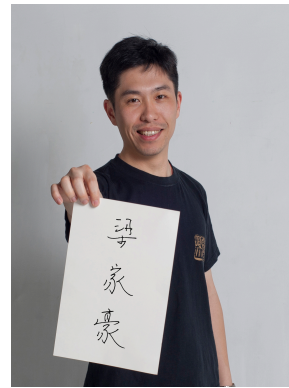 梁
家
豪